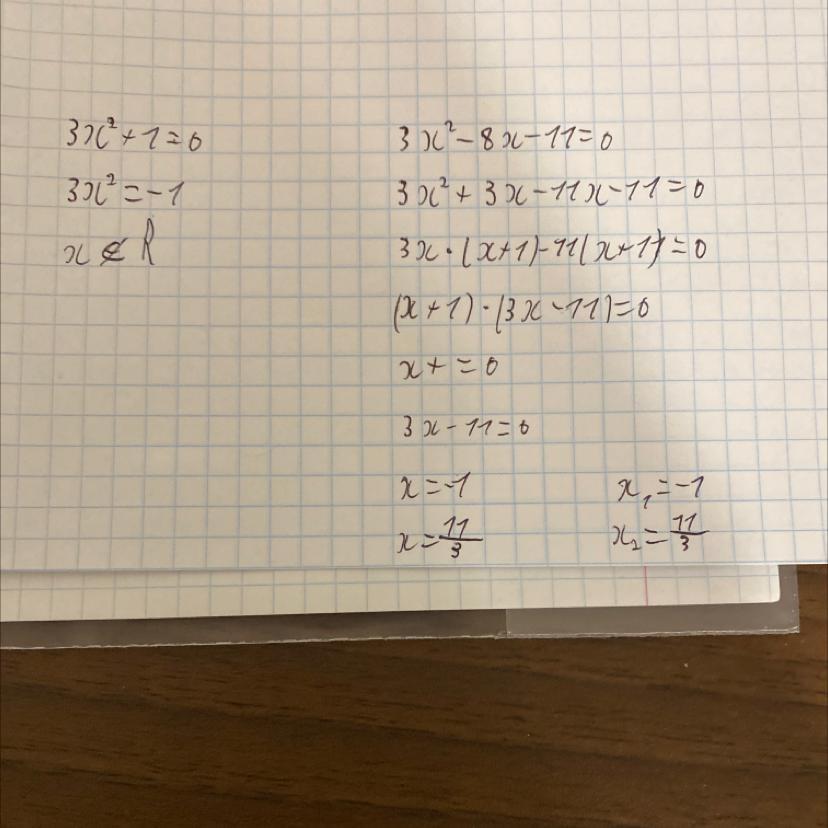 3x²+1=0
3x²=-1
x∉R
3x²-8x-11=0
3x²+3x-11x-11=0
3x·(x+1)-11(x+1)=0
(x+1)·(3x-11)=0
x+=0
3x-11=0
x=-1
x=11/3
x₁=-1
x₂=11/3